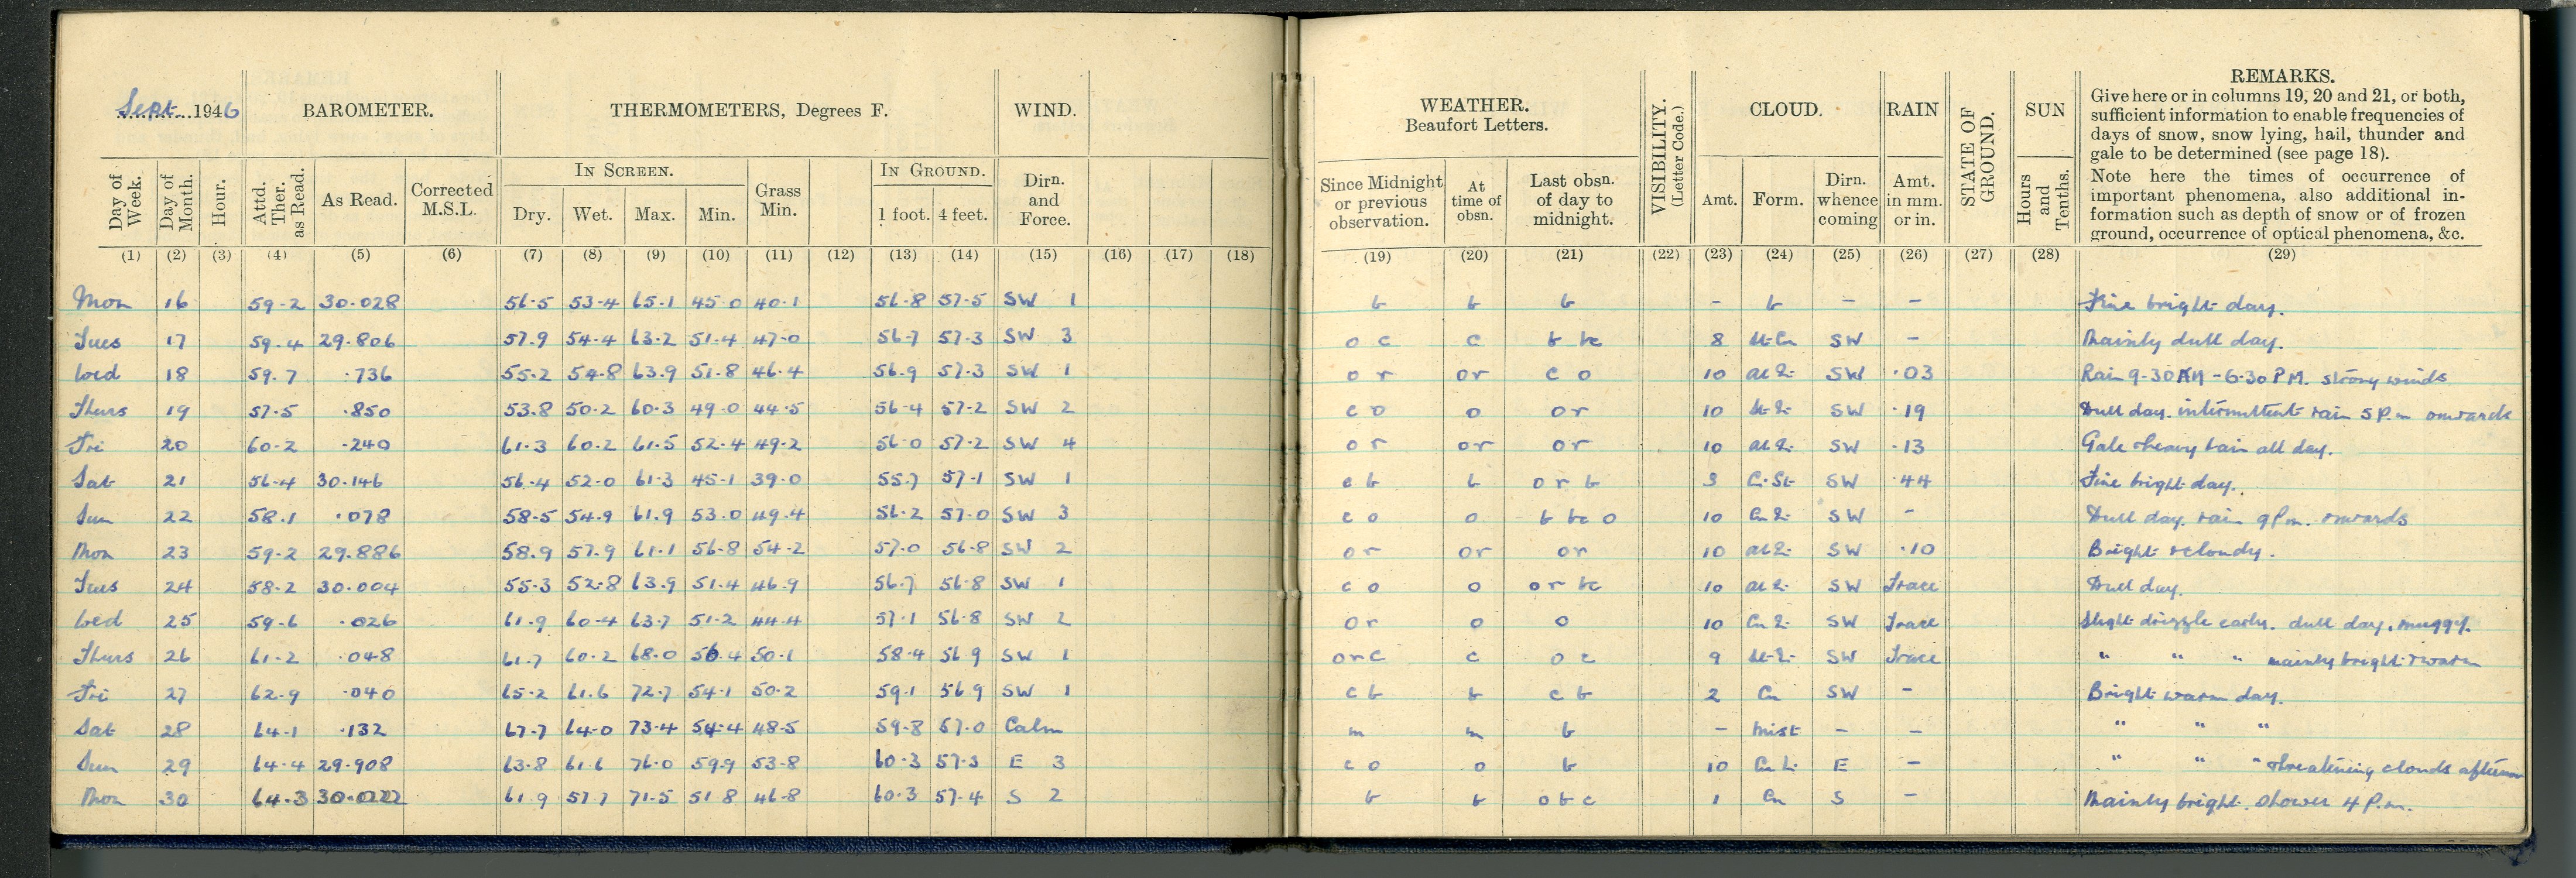 Sept. 1946 BAROMETER. THERMOMETERS, Degrees F. WIND.
IN SCREEN. IN GROUND.
Day of Week. Day of Month. Hour. Attd. Ther. as Read. As Read. Corrected M.S.L. Dry. Wet. Max. Min. Grass Min. 1 foot. 4 feet. Dirn. and Force.
(1) (2) (3) (4) (5) (6) (7) (8) (9) (10) (11) (12) (13) (14) (15) (16) (17) (18)
Mon 16 59.2 30.028 56.5 53.4 65.1 45.0 40.1 56.8 57.5 SW 1
Tues 17 59.4 29.806 57.9 54.4 63.2 51.4 47.0 56.7 57.3 SW 3
Wed 18 59.7 .736 55.2 54.8 63.9 51.8 46.4 56.9 57.3 SW 1
Thurs 19 57.5 .850 53.8 50.2 60.3 49.0 44.5 56.4 57.2 SW 2
Fri 20 60.2 .240 61.3 60.2 61.5 52.4 49.2 56.0 57.2 SW 4
Sat 21 56.4 30.146 56.4 52.0 61.3 45.1 39.0 55.7 57.1 SW 1
Sun 22 58.1 .078 58.5 54.9 61.9 53.0 49.4 56.2 57.0 SW 3
Mon 23 59.2 29.886 58.9 57.9 61.1 56.8 54.2 57.0 56.8 SW 2
Tues 24 58.2 30.004 55.3 52.8 63.9 51.4 46.9 56.7 56.8 SW 1
Wed 25 59.6 .026 61.9 60.4 63.7 51.2 44.4 57.1 56.8 SW 2
Thurs 26 61.2 .048 61.7 60.2 68.0 56.4 50.1 58.4 56.9 SW 1
Fri 27 62.9 .040 65.2 61.6 72.7 54.1 50.2 59.1 56.9 SW 1
Sat 28 64.1 .132 67.7 64.0 73.4 54.4 48.5 59.8 57.0 Calm
Sun 29 64.4 29.908 63.8 61.6 76.0 59.9 53.8 60.3 57.3 E 3
Mon 30 64.3 30.022 61.9 57.7 71.5 51.8 46.8 60.3 57.4 S 2
WEATHER. Beaufort Letters. VISIBILITY. (Letter Code.) CLOUD. RAIN STATE OF GROUND. SUN REMARKS.
Give here or in columns 19, 20 and 21, or both,
sufficient information to enable frequencies of
days of snow, snow lying, hail, thunder and
gale to be determined (see page 18).
Note here the times of occurrence of
important phenomena, also additional in-
formation such as depth of snow or of frozen
ground, occurrence of optical phenomena, &c.
Since Midnight or previous observation. At time of obsn. Last obsn. of day to midnight. Amt. Form. Dirn. whence coming Amt. in mm. or in. Hours and Tenths.
(19) (20) (21) (22) (23) (24) (25) (26) (27) (28) (29)
b b b - b - - Fine bright day.
o c c b bc 8 St-Cu SW - Mainly dull day.
o r or c o 10 SW .03 Rain 9-30 AM - 6-30 P.M. strong winds
c o o or 10 SW .19 Dull day. intermittent rain 5 P.m onwards
o r or or 10 SW .13 Gale & heavy rain all day.
c b b o r b 3 C-St SW .44 Fine bright day.
c o o b bc o 10 SW - Dull day. rain 9 P.m. onwards
o r or or 10 SW .10 Bright & cloudy.
c o o o r bc 10 SW Trace Dull day.
o r o o 10 SW Trace Slight drizzle early. dull day. muggy.
o r c c o c 9 SW Trace " " " mainly bright & warm
c b b c b 2 Cu SW - Bright warm day.
m m b - Mist - - " " "
c o o b 10 E - " " " threatening clouds afternoon
b b o b c 1 Cu S - Mainly bright. Shower 4 P.m.